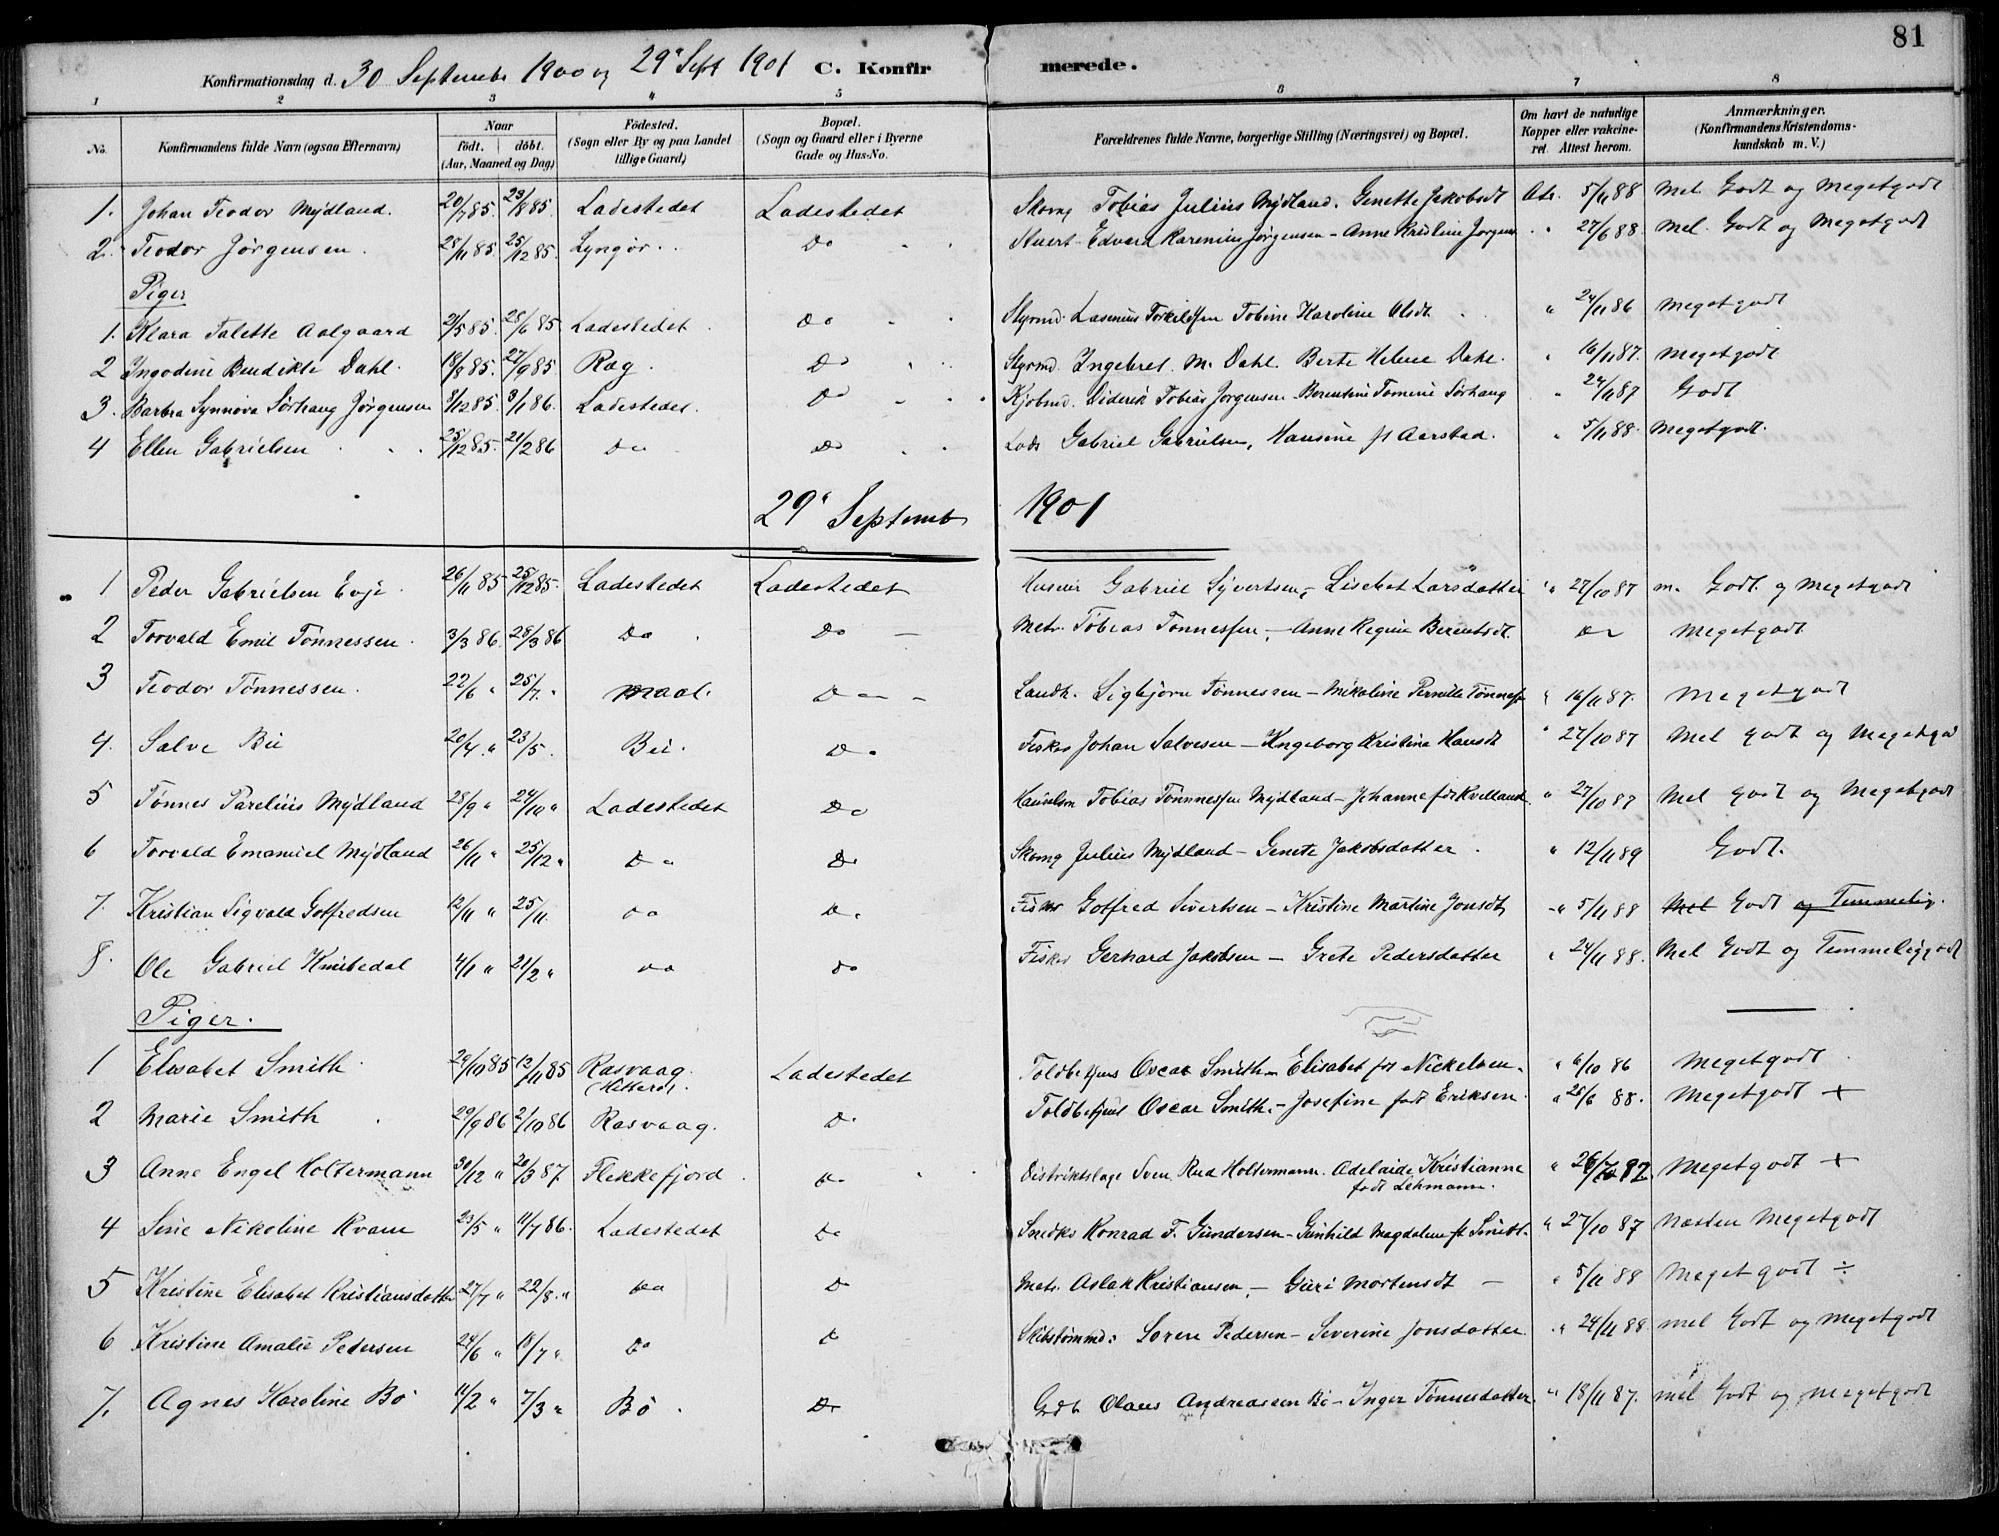 81
Konfirmationsdag d. 30 September 1900 og 29de Sept 1901 C. Konfirmerede.
1 2 3 4 5 6 7 8
No. Konfirmandens fulde Navn (ogsaa Efternavn) Naar födt. döbt. (Aar, Maaned og Dag) Födested. (Sogn eller By og paa Landet tillige Gaard) Bopæl. (Sogn og Gaard eller i Byerne Gade og Hus-No. Forældrenes fulde Navne, borgerlige Stilling (Næringsvei) og Bopæl. Om havt de naturlige Kopper eller vakcineret. Attest herom. Anmærkninger. (Konfirmandens Kristendomskundskab m. V.)
1. Johan Teodor Mydland. 20/7 85. 23/8 85. Ladestedet Ladestedet Skomg Tobias Julius Mydland. Genette Jakobsdt Atr. 5/11 88 Mel. Godt og Megetgodt
2. Teodor Jørgensen. 28/11 85. 25/12 85. Lyngör. Do Stuert Edvard Karenius Jørgensen - Anne Kristine Jørgens " 27/6 88. Mel. Godt og Megetgodt
Piger
1. Klara Talette Aalgaard 2/5 85. 28/6 85 Ladestedet Do Styrmd. Lasenius Torkildsen Tobine Karoline Olsdt " 24/11 86 Megetgodt
2 Ingodine Bendikte Dahl. 18/8 85. 27/9 85 Ræg. Do Styrmd. Ingebret. M. Dahl. Berte Helene Dahl. " 16/11 87. Megetgodt
3. Barbra Synnöva Sørhaug Jørgensen 3/12 85. 3/1 86. Ladestedet. Do Kjøbmd. Diderik Tobias Jørgensen - Berentine Tomine Sørhaug " 24/11 87 Godt
4 Ellen Gabrielsen 25/12 85. 21/2 86 Do Do Lods Gabriel Gabrielsen, Hansine ft Aarstad. " 5/11 88. Megetgodt.
29de Septemb 1901
1 Peder Gabrielsen Evje 26/11 85 25/12 85. Ladestedet Ladestedet Gabriel Syvertsen, - Lisebet Larsdatter " 27/10 87 m. Godt. og Megetgodt
2 Torvald Emil Tönnessen. 3/3 86. 28/3 86 Do Do Matr. Tobias Tönnessen, - Anne Regine Berentsdt. Do Megetgodt
3 Teodor Tönnessen. 22/6 " 25/7. " Do Landh. Sigbjörn Tönnessen - Mikaline Pernille Tönness " 16/11 87. Megetgodt
4. Salve Bie 20/4. " 23/5. Bie. Do Fisker Johan Salvesen - Ingeborg Kristine Hansdt " 27/10 87 Mel Godt og Megetgo
5 Tönnes Parelius Mydland 28/9 " 24/10 " Ladestedet Do Tobias Tönnnessen Mydland - Johanne født Kvelland " 27/10 87 Mel Godt og Megetgodt
6 Torvald Emanuel Mydland 26/11 " 25/12 " Do Do Skomg Julius Mydland - Genete Jakobsdatter. " 12/11 89 Godt.
7. Kristian Sigvald Gotfredsen 12/11 " 25/11. Do Do Fisker Gotfred Sivertsen - Kristine Martine Jonsdt " 5/11 88 Mel Godt og Temmelig.
8. Ole Gabriel Knibedal 4/1 " 21/2 " Do Do Fisker Gerhard Jakobsen - Grete Pedersdatter " 24/11 88. Mel Godt og Temmeliggodt
Piger.
1 Elisabet Smith. 29/10 85 12/11 85 Rasvaag. Ladestedet Toldbetjens Oscar Smith - Elisabet ft Nickelsen. " 6/10 86 Megetgodt
2 Marie Smith 29/9 86 2/10 86 Rasvaag. Do Toldbetjens Oscar Smith. - Josefine født Eriksen. " 26/6 88. Megetgodt +
3 Anne Engel Holtermann 30/12 " 20/3 87. Flekkefjord Do Distriktslæge Sven Rud Holtermann. Adelaide Kristianne " 26/10 87. Megetgodt +
født Lehmann.
4 Sine Nikoline Kvam 23/5 " 11/7 86. Ladestedet Do Snedker Konrad F. Gundersen - Gunhild Magdalene ft Smidt. " 27/10 87 Næsten Megetgodt
5 Kristine Elisabet Kristiansdatter 27/7 " 22/8. " Do Do Matr. Aslak Kristiansen, - Guri Mortensdt - " 5/11 88 Meget godt ÷
6 Kristine Amalie Pedersen 24/6 " 18/7 " Do Do Skibstømmd: Sören Pedersen - Severine Jonsdatter " 24/11 88 mel Godt og Megetgodt
7. Agnes Karoline Bö 11/2 " 7/3 " Bö. Do Olaus Andreassen Bö - Inger Tønnesdatter. " 18/11 87. mel Godt og Megetgodt